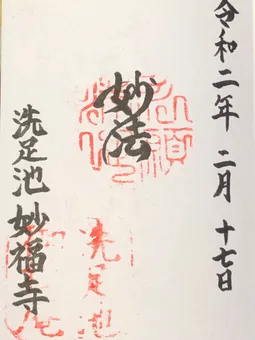 令和二年 二月 十七日
妙法
洗足池 妙福寺
洗足池